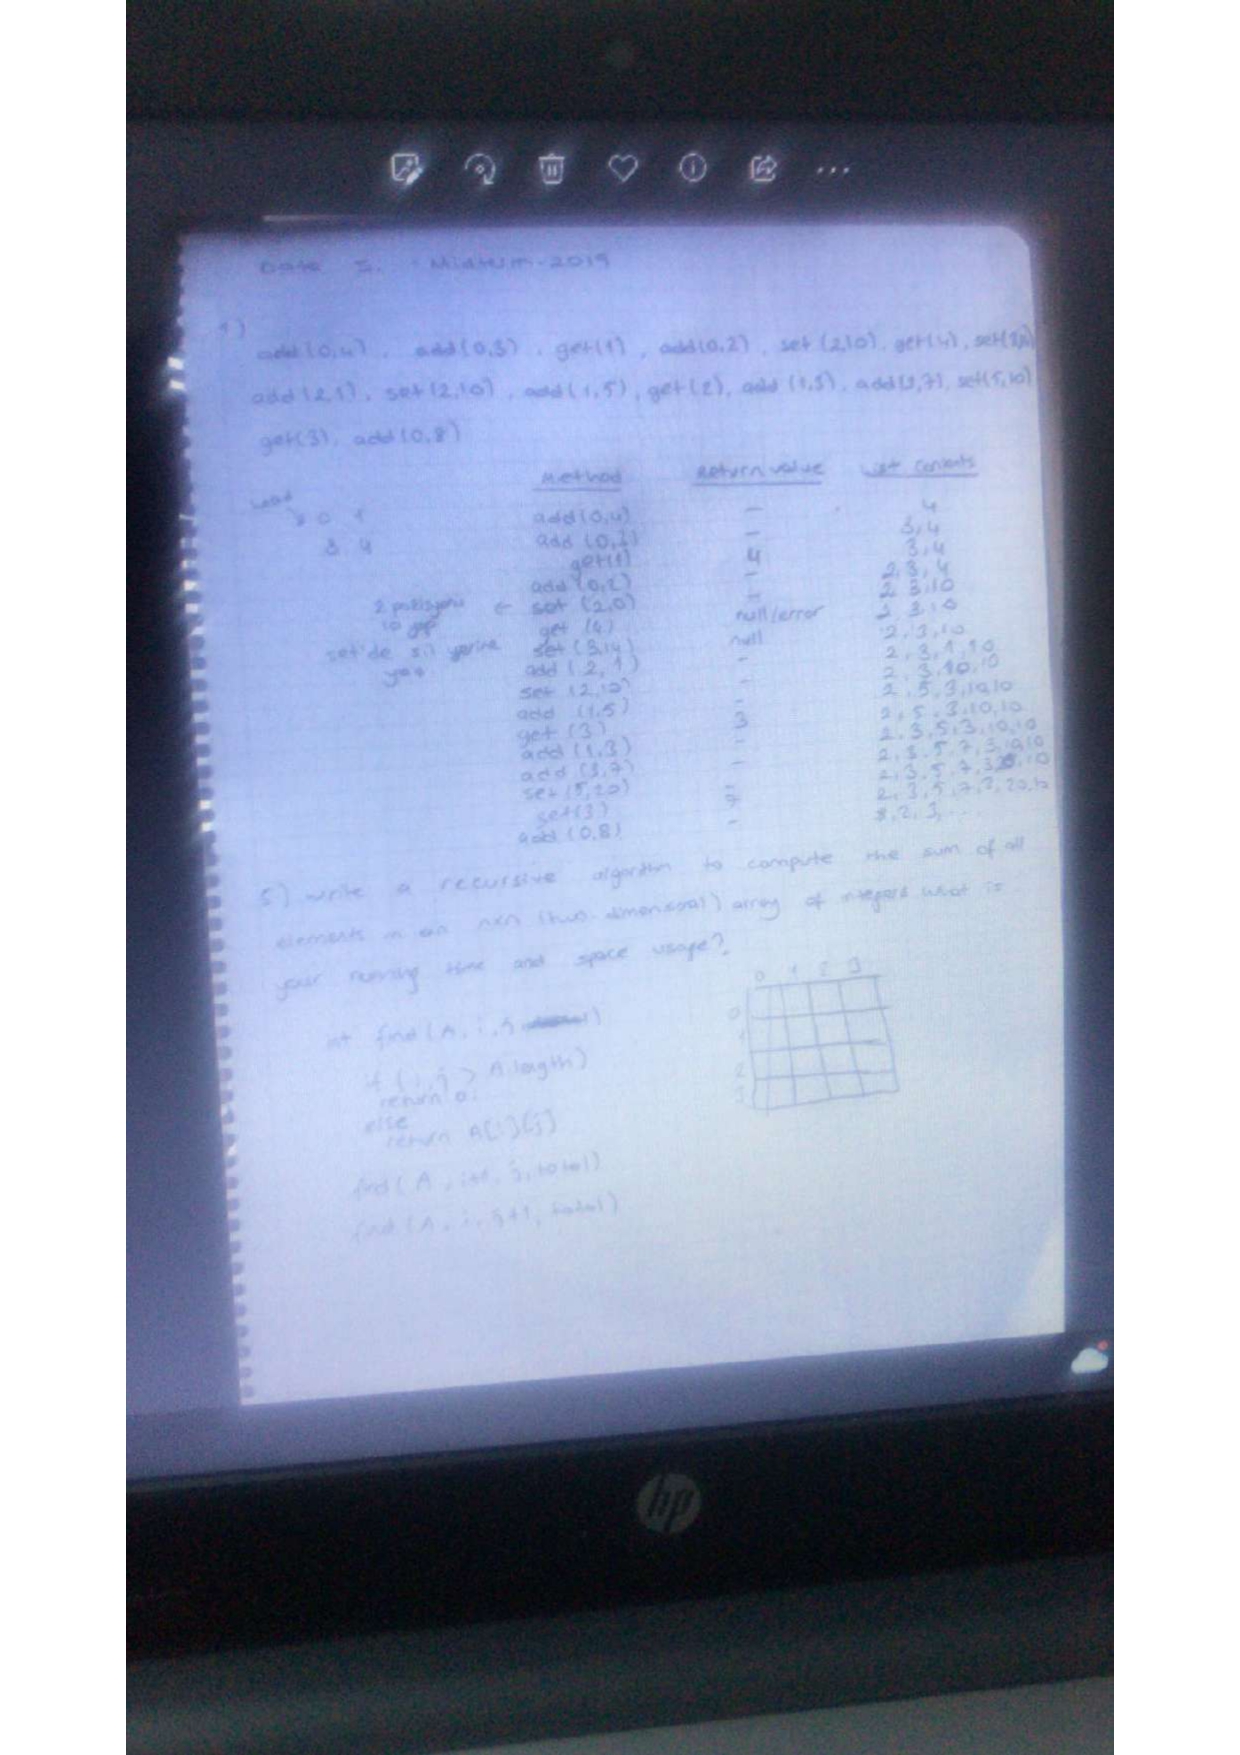 Data S. Midterm-2019
1)
add(0,4), add(0,3), get(1), add(0,2), set(2,10), get(4),
add(2,1), set(2,10), add(1,5), get(2), add(1,3), add(3,7), set(5,10)
get(3), add(0,8)
Method Return value List Contents
0 1
add(0,4) - 4
3 4
add(0,3) - 3,4
get(1) 4 3,4
add(0,2) - 2,3,4
← set (2,0) - 2,3,10
get (4) null/error 2,3,10
set'de sil yerine
set (3,4) null 2,3,10
add (2,1) - 2,3,1,10
set (2,10) - 2,3,10,10
add (1,5) - 2,5,3,10,10
get (3) 3 2,5,3,10,10
add (1,3) - 2,3,5,3,10,10
add (3,7) - 2,3,5,7,3,10,10
set (5,20) - 2,3,5,7,3,20,10
get(3) 7 2,3,5,7,3,20,10
add (0,8) - 8,2,3,...
5) write a recursive algorithm to compute the sum of all
elements in an nxn (two-dimensional) array of integers. what is
your running time and space usage?
0 1 2 3
0
1
2
3
int find (A, i, j)
if (i,j > A.length)
return 0;
else
return A[i][j]
find (A, i+1, j, total)
find (A, i, j+1, total)
hp